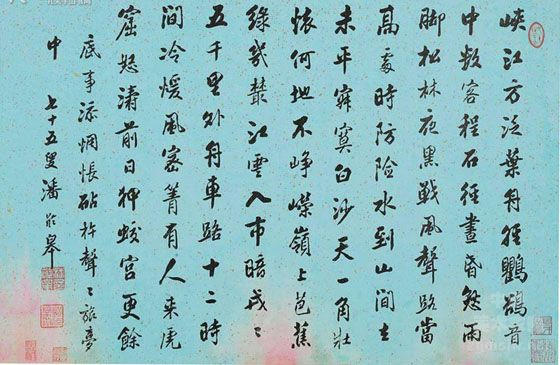 峽江方泛葉舟輕鸚鵡音
中數客程石徑晝昏雨
脚松林夜黑戰風聲路當
高處時防險水到山間
未平寂寞白沙天一角壯
懷何地不崢嶸嶺上芭蕉
綠幾叢江雲入市暗戎〻
五千里外舟車路十二時
間冷煖風密箐有人來虎
窟怒濤前日狎蛟宮更餘
底事添惆悵砧杵聲〻旅夢
中
七十五叟潘齡皋